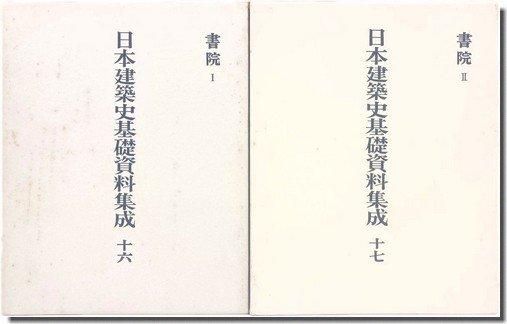 書院 I
日本建築史基礎資料集成 十六
書院 II
日本建築史基礎資料集成 十七